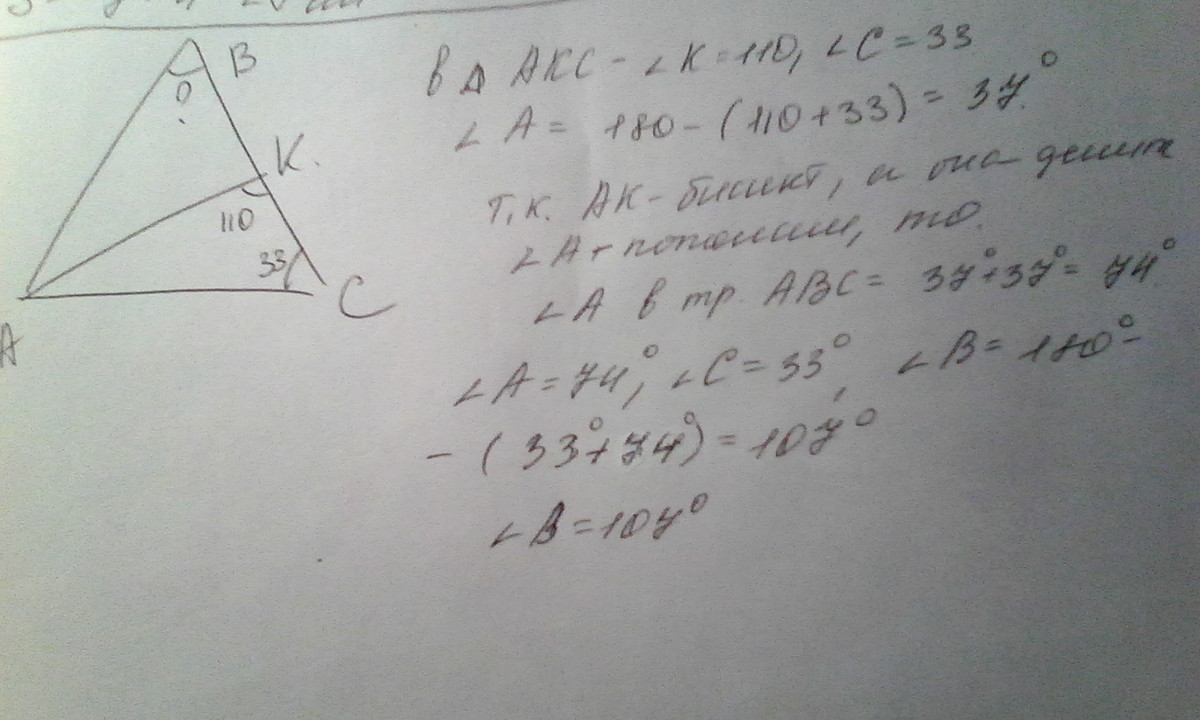 B
?
K.
110
33
C
A
в Δ AKC - ∠K=110, ∠C=33
∠A= 180-(110+33)=37°
т.к. AK-бисект, и она делит
∠A пополам, то.
∠A в тр. ABC= 37°+37°=74°
∠A=74°, ∠C=33°, ∠B=180°-
-(33°+74°)=107°
∠B=107°